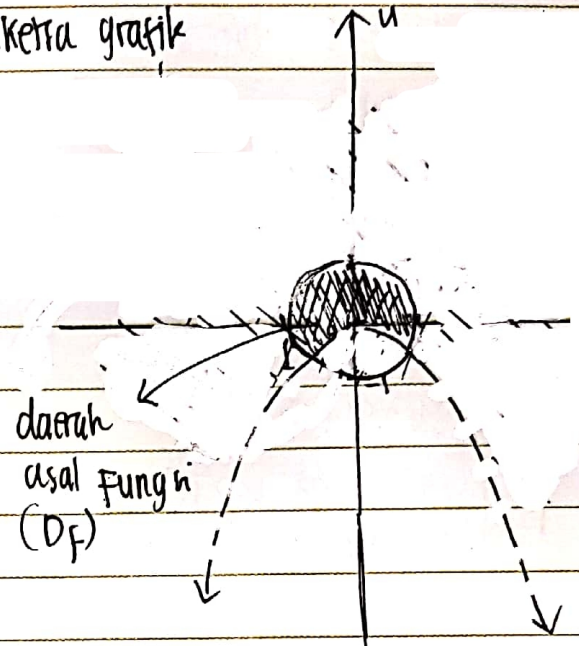 ketsa grafik
y
daerah
asal Fungsi
(DF)